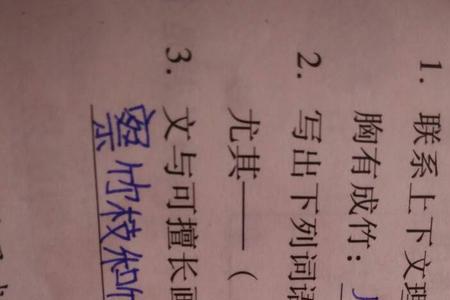 1. 联系上下文理
胸有成竹：
2. 写出下列词语
尤其——（
3. 文与可擅长画
察竹枝和